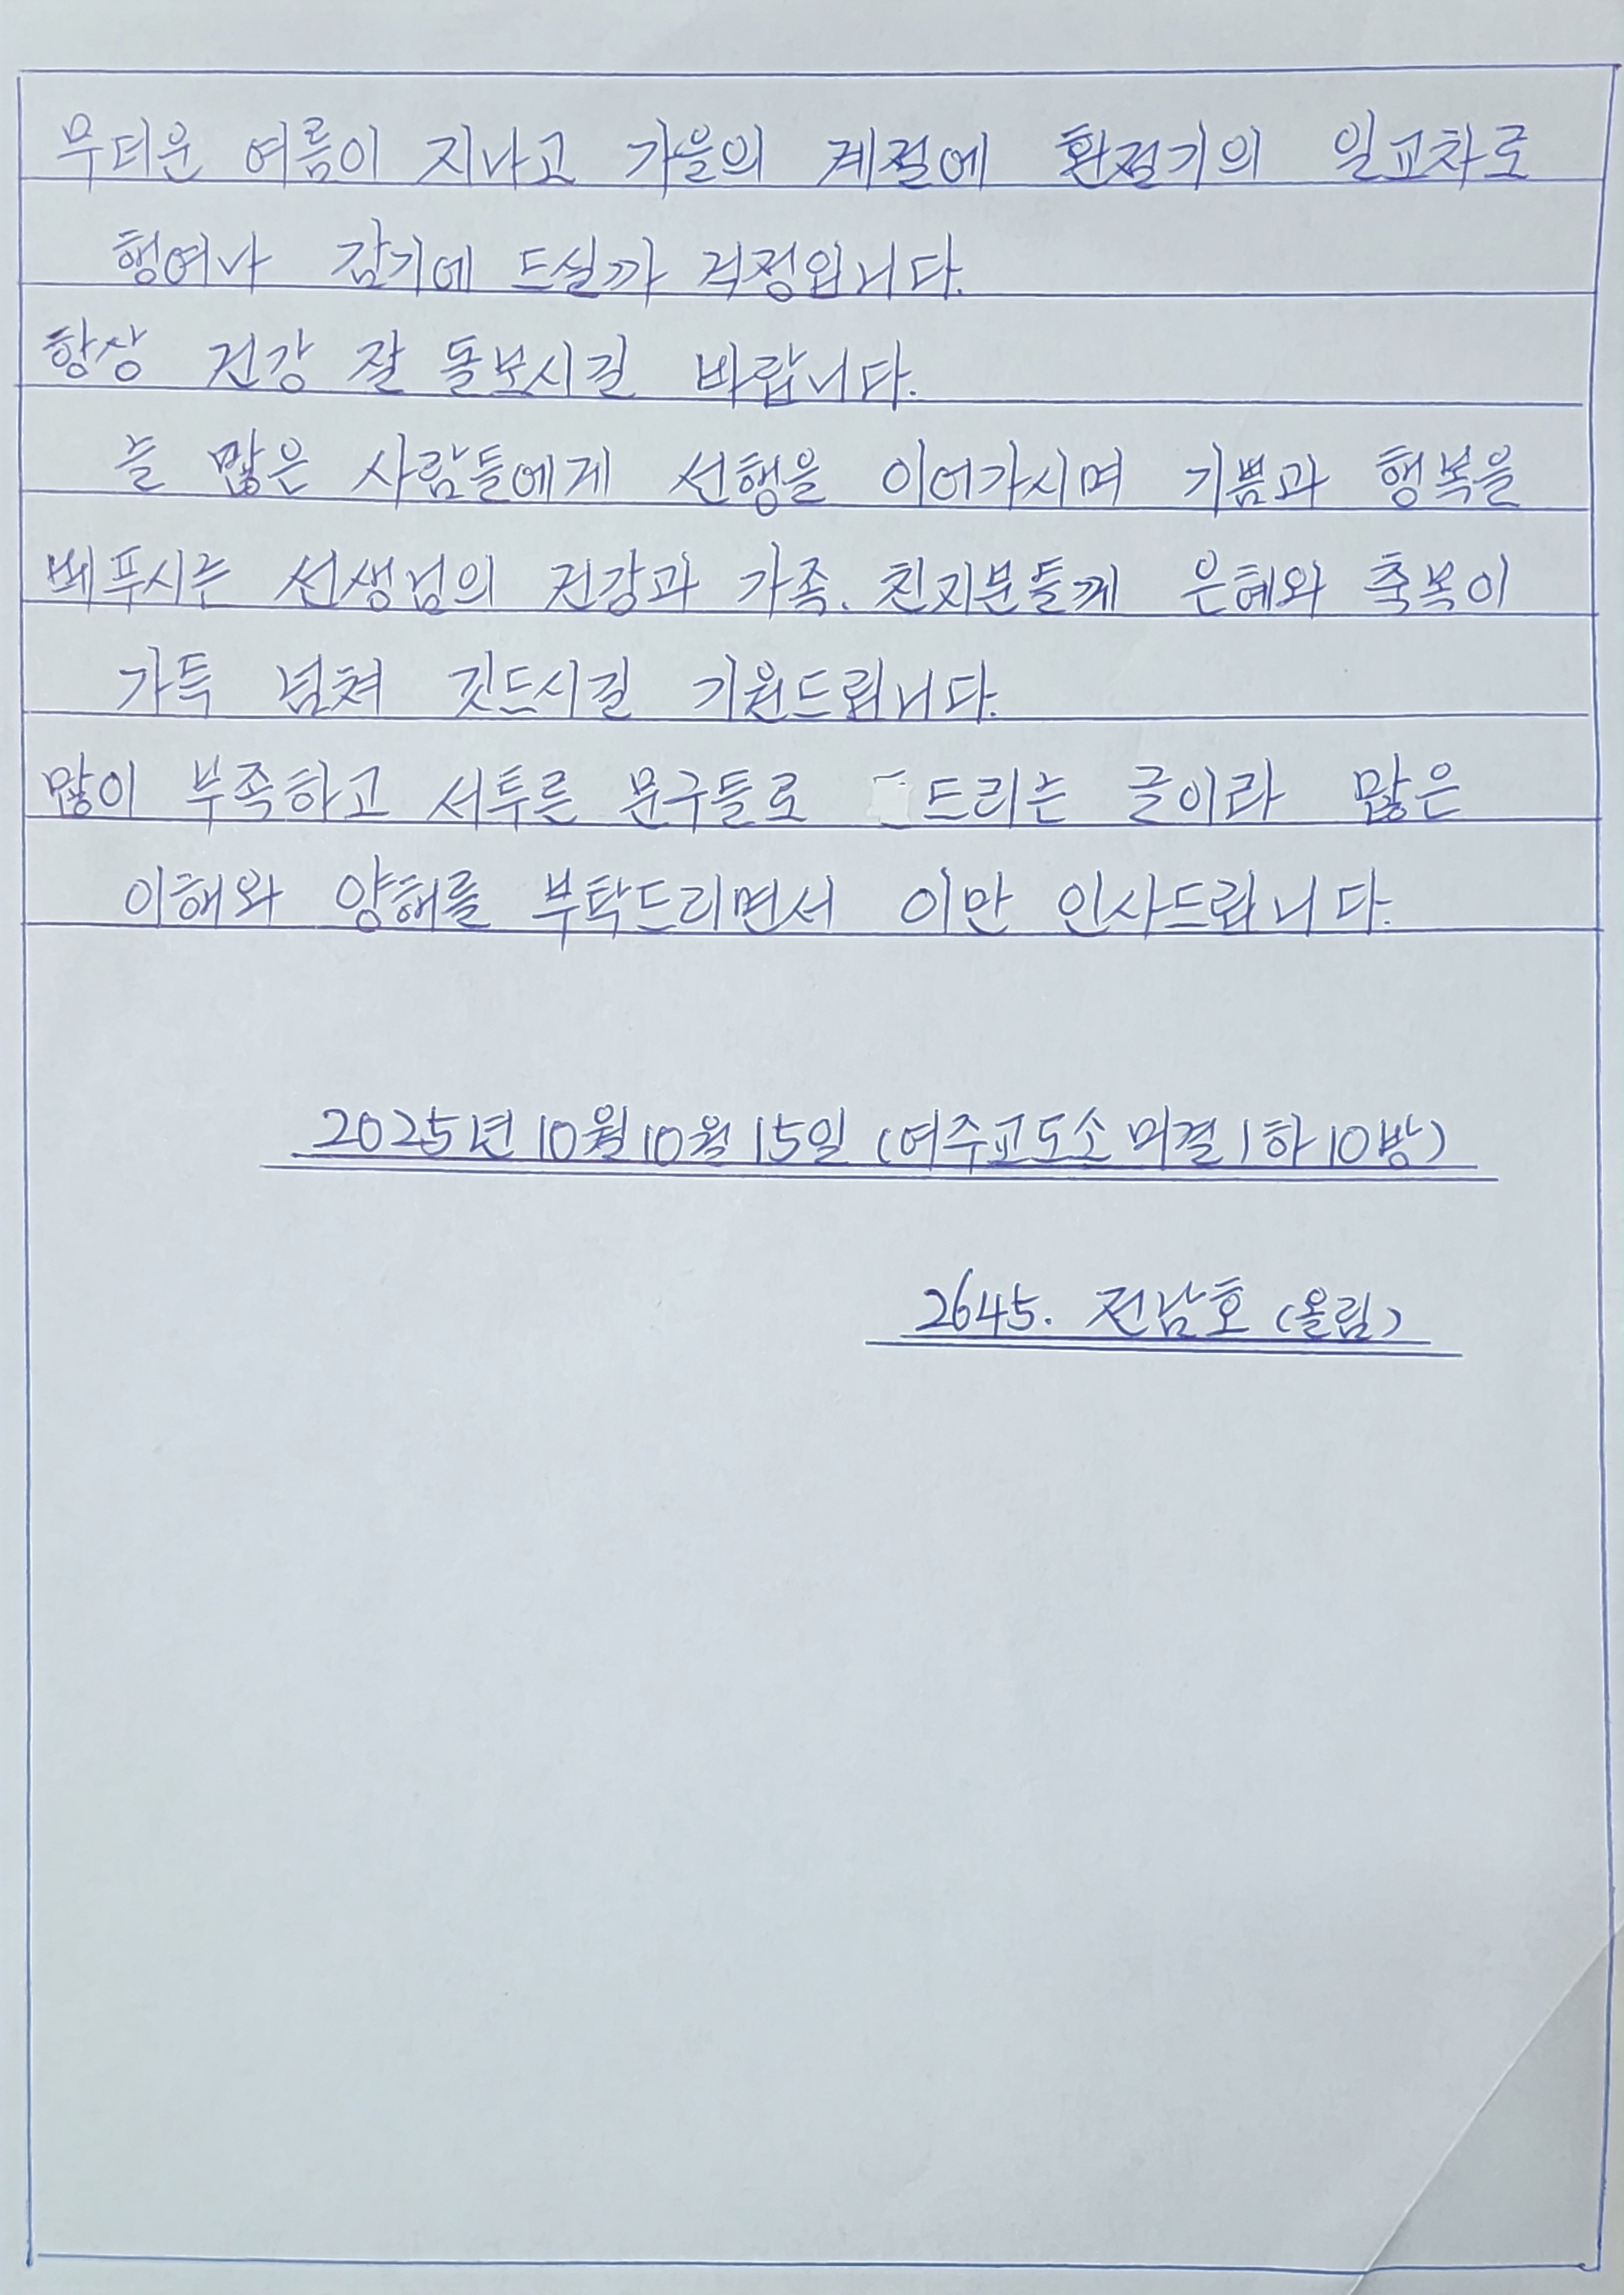 무더운 여름이 지나고 가을의 계절에 환절기의 일교차로
행여나 감기에 드실까 걱정입니다.
항상 건강 잘 돌보시길 바랍니다.
늘 많은 사람들에게 선행을 이어가시며 기쁨과 행복을
베푸시는 선생님의 건강과 가족. 친지분들께 은혜와 축복이
가득 넘쳐 깃드시길 기원드립니다.
많이 부족하고 서투른 문구들로 드리는 글이라 많은
이해와 양해를 부탁드리면서 이만 인사드립니다.
2025년 10월 10월 15일 (여주교도소 미결 1하 10방)
2645. 전남호 (올림)